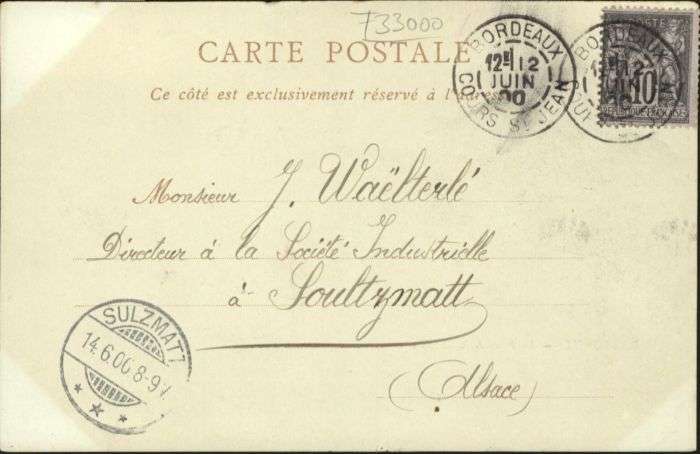 733000
CARTE POSTALE
Ce côté est exclusivement réservé à l'
BORDEAUX
12E 12
JUIN
00
COURS ST JEAN
BORDEAUX
12
POSTE
10
REPUBLIQUE FRANÇAISE
Monsieur J. Waëlterlé
Directeur à la Société Industrielle
à Soultzmatt
(Alsace)
SULZMATT
14.6.00 8-9V